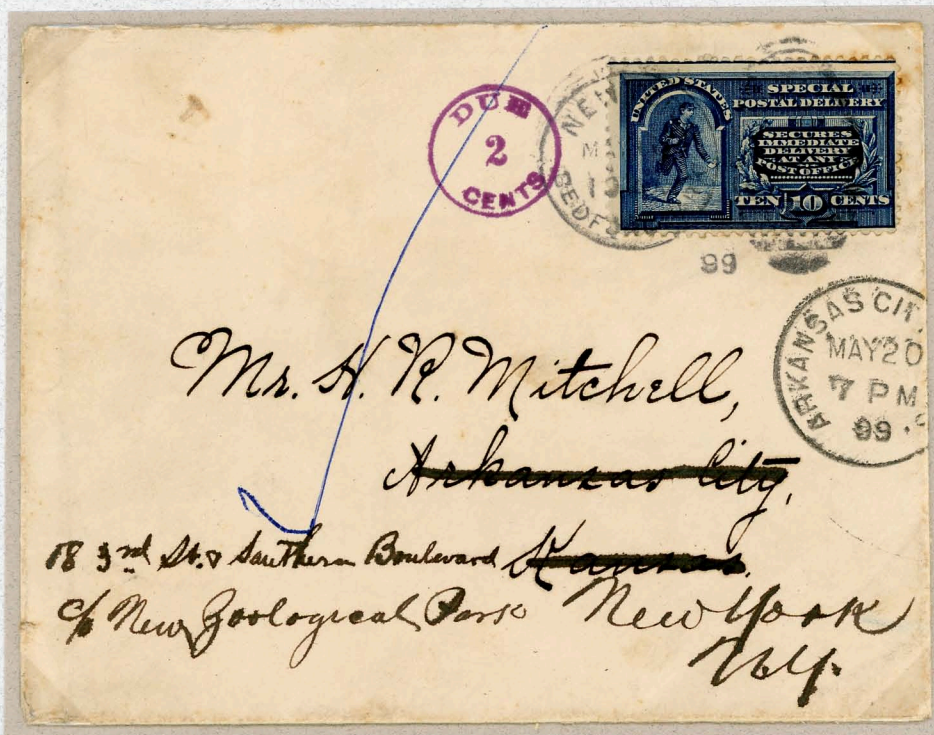 DUE
2
CENTS
NEW
BEDFO
99
UNITED STATES
SPECIAL
POSTAL DELIVERY
SECURES
IMMEDIATE
DELIVERY
AT ANY
POST OFFICE
TEN 10 CENTS
ARKANSAS CIT
MAY 20
7 PM
99
Mr. H. R. Mitchell,
Arkansas City,
Kansas.
18 3rd St. & Southern Boulevard
c/o New Zoological Park New York
N.Y.